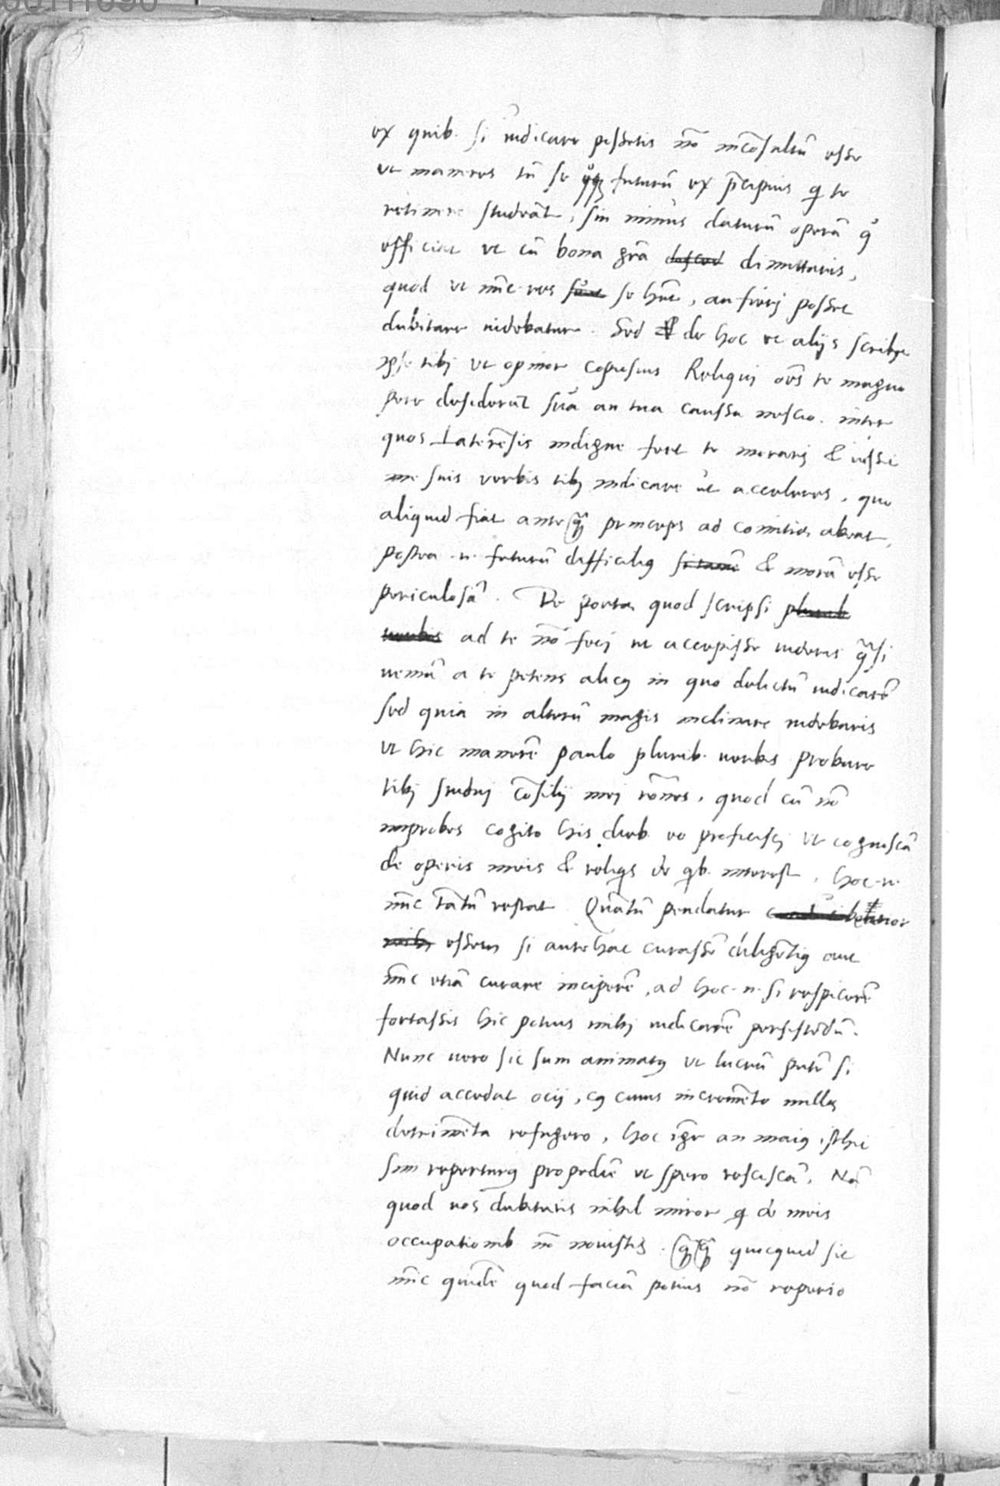 ex quib. si iudicare possetis nō incōsultū esse
ut maneres tū se futurū ex p̄cipuis q te
retinere studeāt, sin minus daturū operā
efficiat ut cū bona grā dimittaris,
quod ut nūc res se hnt, an fieri posset
dubitare uidebatur. Sed de hoc et alijs scribet
ipse tibi ut opinor copiosius Reliqui oēs te magno
pere desiderāt suā an tua caussa nescio. inter
quos Laterēsis indigne fert te morari & iussit
me suis uerbis tibi indicare ut acceleres, quo
aliquid fiat anteq̄ princeps ad comitia abeat,
postea n. futurū difficilius & morā esse
periculosā. De porta quod scripsi plurib.
uerbis ad te nō feci ut accepisse uideris q̄si
ueniā a te petens alicuius in quo delictū iudicarē
sed quia in alterū magis inclinare uidebaris
ut hic manerē paulo plurib. uerbis probare
tibi studui cōsilij mei rōnes, quod cū nō
improbes cogito his dieb. eo proficisci ut cognoscā
de operis meis & reliqs de qb. interest, hoc n.
nūc tātū restat. Quātū pendatur
essem si antehac curassē diligētius aut
nūc etiā curare inciperē, ad hoc n. si respicerē
fortassis hic potius mihi iudicarē persistēdū.
Nunc uero sic sum animatus ut lucrū putē si
quid accedat ocij, cuius incremēto nulla
detrimēta refugero, hoc igr an maius isthic
sim reperturus propediē ut spero resciscā. Nā
quod uos dubitatis nihil miror q de meis
occupationib. nō nouistis. quicquid sit
nūc quidē quod faciā potius nō reperio